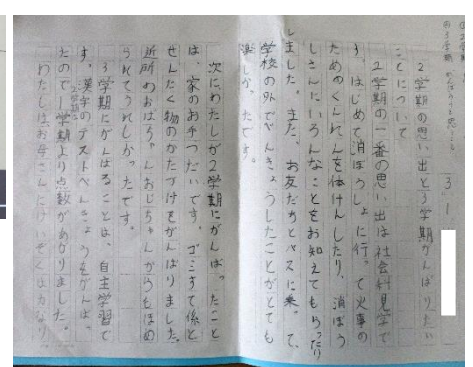 3の1
2学期の思い出と3学期がんばりたい
ことについて
2学期の一番の思い出は社会科見学で
す。はじめて消ぼうしょに行って火事の
ためのくんれんを体けんしたり、消ぼう
しさんにいろんなことをお知えてもらったり
しました。また、お友だちとバスに乗って、
学校の外でべんきょうしたことがとても
楽しかったです。
次にわたしが2学期にがんばったこと
は、家のお手つだいです。ゴミすて係と
せんたく物のかたづけをがんばりました。
近所のおばちゃんおじちゃんからもほめ
られてうれしかったです。
3学期にがんばることは、自主学習で
す。漢字のテストべんきょうをがんばっ
たので1学期より点数があがりました。
わたしはお母さんに